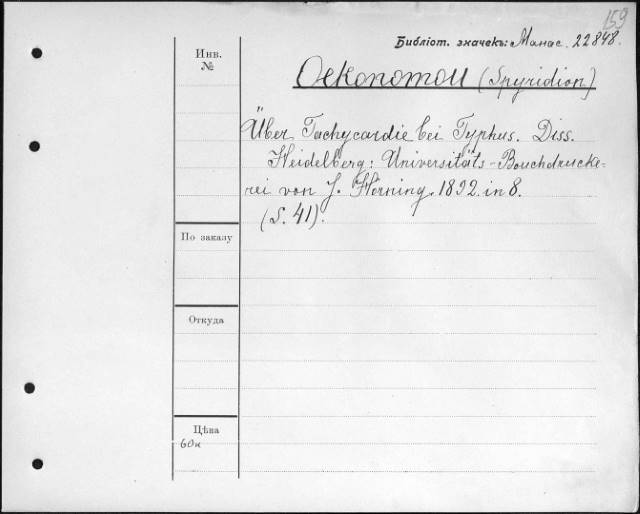 159
Библіот. значекъ: Манас. 22848.
Инв.
№
Oekonomou (Spyridion)
Über Tachycardie bei Typhus. Diss.
Heidelberg: Universitäts-Bouchdrucke-
rei von J. Hörning. 1892. in 8.
(S. 41).
По заказу
Откуда
Цѣна
60к